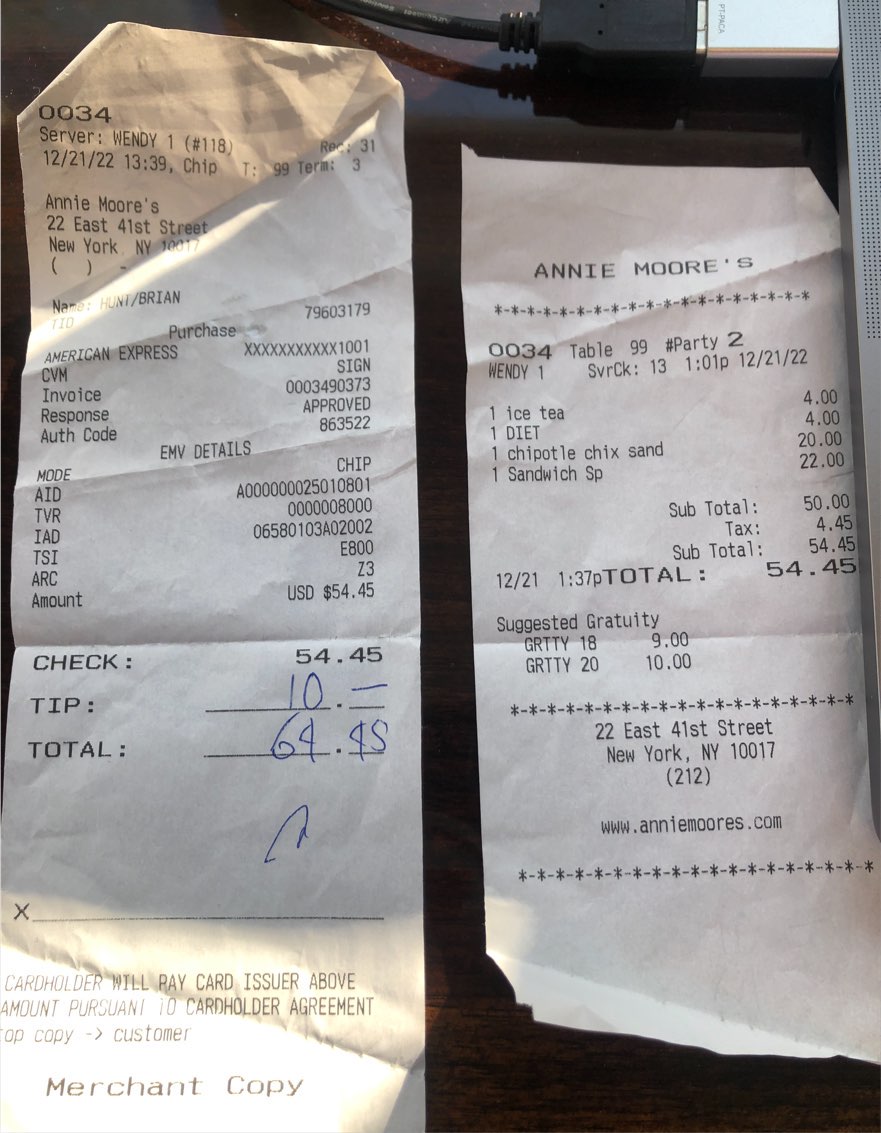 PT-PACA
0034
Server: WENDY 1 (#118) Rec: 31
12/21/22 13:39, Chip T: 99 Term: 3
Annie Moore's
22 East 41st Street
New York, NY 10017
( ) -
Name: HUNT/BRIAN
TID 79603179
Purchase
AMERICAN EXPRESS XXXXXXXXXXX1001
CVM SIGN
Invoice 0003490373
Response APPROVED
Auth Code 863522
EMV DETAILS
MODE CHIP
AID A000000025010801
TVR 0000008000
IAD 06580103A02002
TSI E800
ARC Z3
Amount USD $54.45
CHECK: 54.45
TIP: 10.—
TOTAL: 64.45
X
CARDHOLDER WILL PAY CARD ISSUER ABOVE
AMOUNT PURSUANT TO CARDHOLDER AGREEMENT
op copy -> customer
Merchant Copy
ANNIE MOORE'S
*-*-*-*-*-*-*-*-*-*-*-*-*-*-*-*-*
0034 Table 99 #Party 2
WENDY 1 SvrCk: 13 1:01p 12/21/22
1 ice tea 4.00
1 DIET 4.00
1 chipotle chix sand 20.00
1 Sandwich Sp 22.00
Sub Total: 50.00
Tax: 4.45
Sub Total: 54.45
12/21 1:37pTOTAL: 54.45
Suggested Gratuity
GRTTY 18 9.00
GRTTY 20 10.00
*-*-*-*-*-*-*-*-*-*-*-*-*-*-*-*-*-*
22 East 41st Street
New York, NY 10017
(212)
www.anniemoores.com
*-*-*-*-*-*-*-*-*-*-*-*-*-*-*-*-*-*